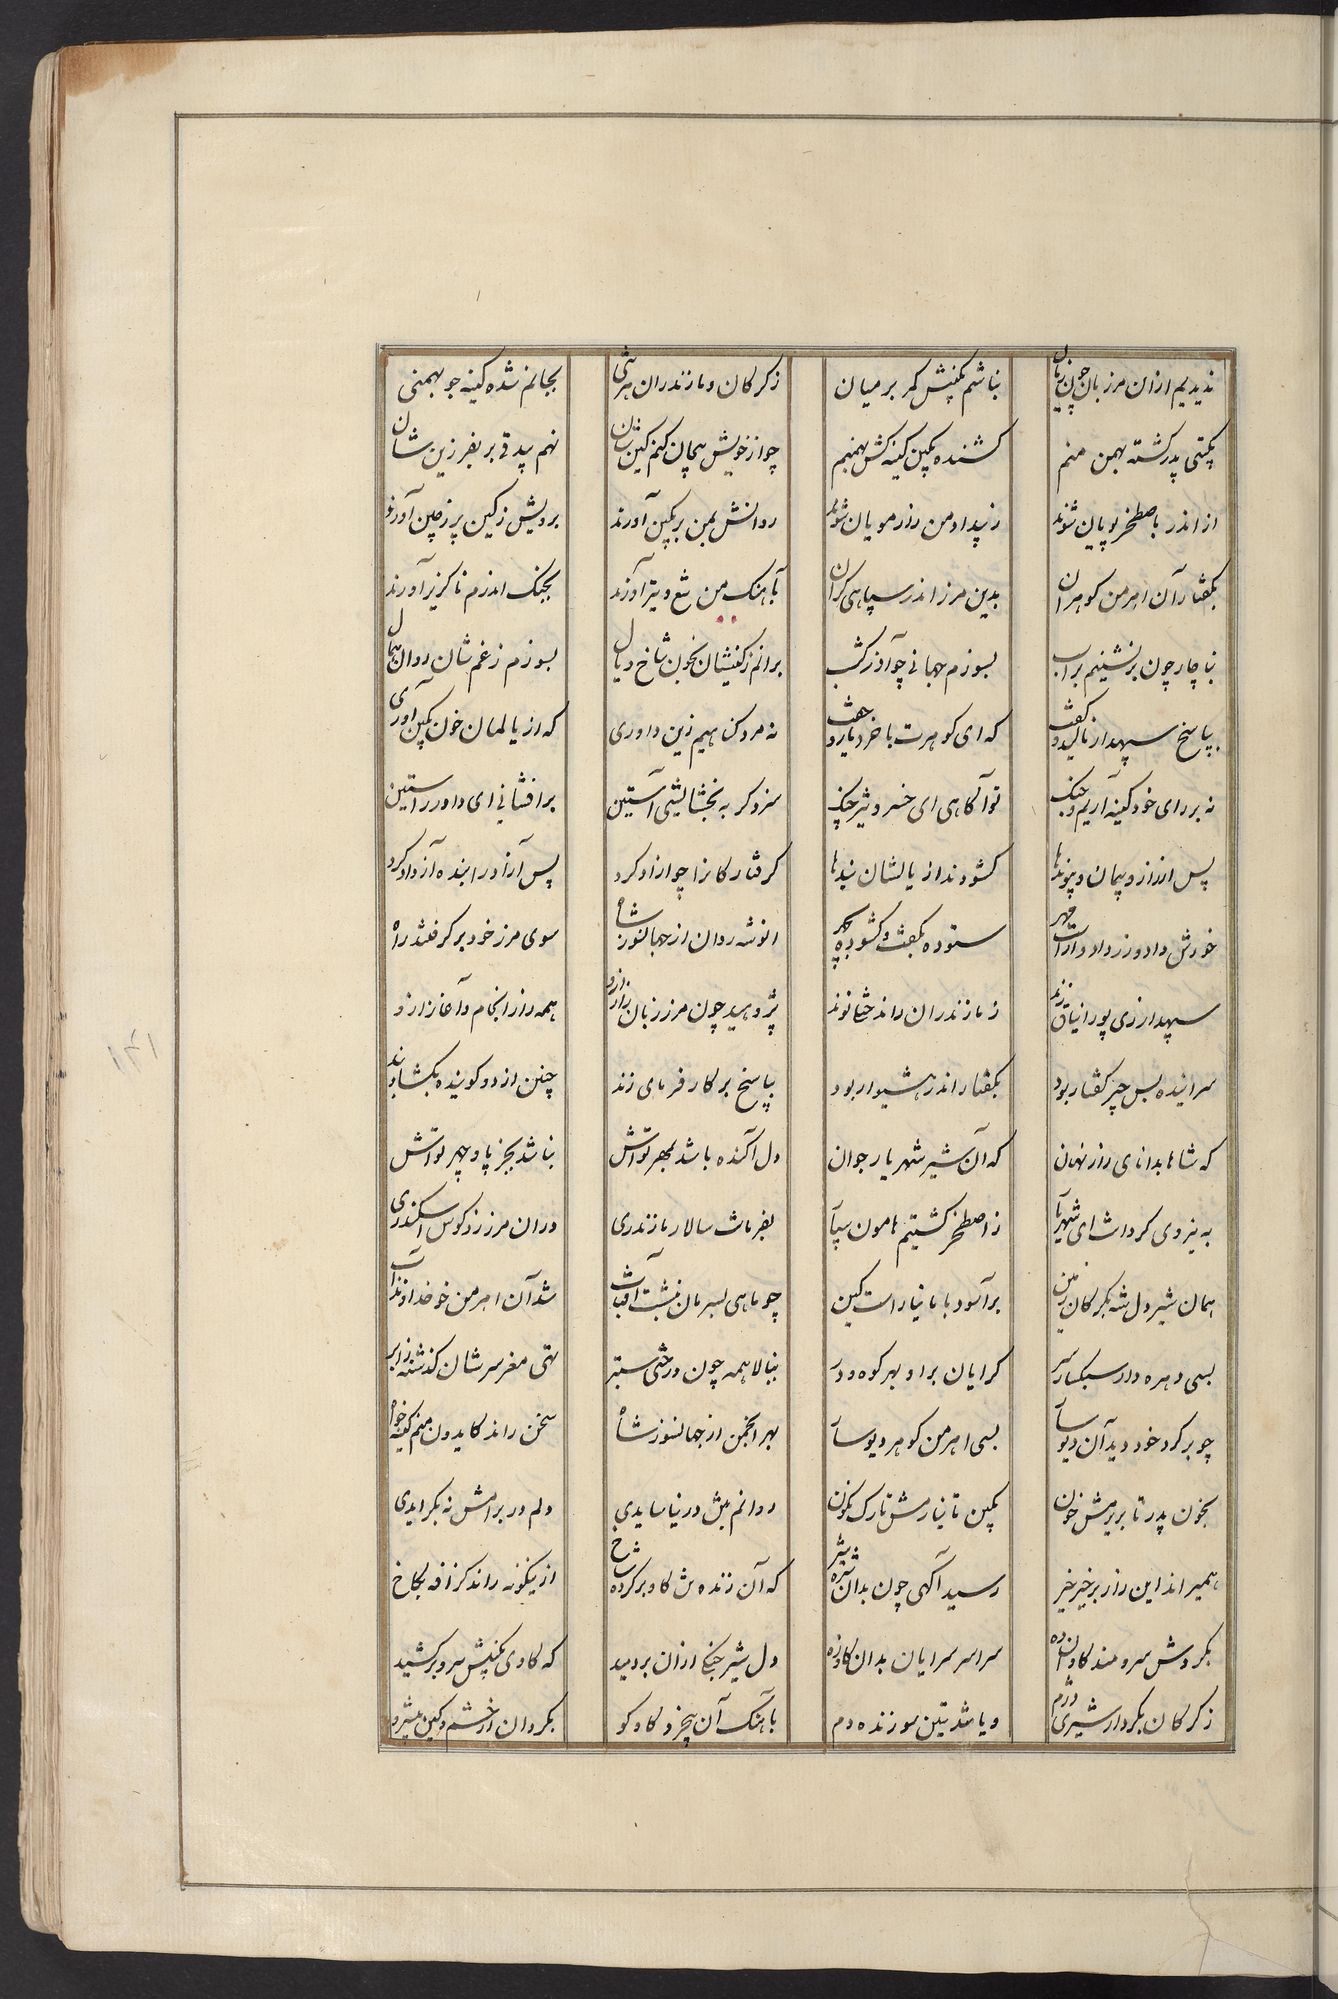 ندیدیم ازان مرزبان چون زیان نباشم بکینش کمر بر میان زکرکان و مازندران هر تنی بجانم شده کینه جو بهمنی
بکتی پدر کشته بهمن منم کشنده بکین کینه کش بهمنم چو از خویش همچان کنم کین شان نهم پید قی بر بفرزین شان
از اندر باصطخر پویان شوند ز بیداد من رزم مویان شوند روانش بمن بر بکین آورند برویش ز کین پر ز چین آورند
بکفتار آن اهرمن کوهران بدین مرز اندر سپاهی کران بآهنک من تیغ و تیر آورند بجنک اندرم ناکزیر آورند
بناچار چون بر نشینم بر اسب بسوزم جهانی چو آذرکشب برانم ز کینشان بخون شاخ و یال بسوزم ز غم شان روان همال
بپاسخ سپهدار نالید و کفت که ای کوهرت با خرد یار و جفت نه مردک نهیم زین داوری که از یالمان خون بکین آوری
نه بر رای خود کینه آریم و جنک تو آکاهی ای خسرو تیز چنک سزد کر به بخشایشی آستین بر افشانی ای داور راستین
پس از راز و پیمان و پیوندها کشودند از یالشان بندها کرفتار کانرا چو ازاد کرد پس آزاد را بنده آزاد کرد
خورش داد و زر داد و آراست مهر ستوده بکفت و کشوده چهر انوشه روان از جهانسوز شاه سوی مرز خود بر کرفتند راه
سپهدار زی پور انیاق زند ز مازندران داند خشانوند پژوهید چون مرزبان راز ازو همه راز انجام و آغاز ازو
سراینده بس چیر کفتار بود بکفتار اندر هشیوار بود بپاسخ بر کار فرمای زند چنین از دو کوینده بکشاد بند
که شاها بدانای راز نهان که آن شیر شهریار جوان دل آکنده باشد بمهر تواش نباشد بجز یاد چهر تواش
به نیروی کرداشای شهریار ز اصطخر کشتیم هامون سپار بفرمات سالار مازندری دران مرز زد کوس اسکندری
همان شیر دل شه بکرکان زمین برآسود با ما نیاراست کین چو ماهی بسرمان بنشت آفتاب شد آن اهرمن خو خداوند آب
بسی دهره دار سبکسار سر کرایان براو بهر کوه و در ببالا همه چون درختی ستبر تهی مغز سرشان کذشته ز ابر
چو بر کرد خود دید آن دیو سار بسی اهرمن کوهر دیوسار بهر انجمن از جهانسوز شاه سخن راند کایدون منم کینه خواه
بخون پدر تا بریزمش خون بکین تا نیارمش تارک نکون روانم بمش در نیاسایدی دلم در برامش نه بکرایدی
همیراند این راز بر خیر خیر رسید آکهی چون بدان شرزه شیر که آن زنده ش کاو بر کرده شاخ ازینکونه راند کزافه بکاخ
بکردش سرومند کاوان ده سراسر سرایان بدان کاوزه دل شیر جنکی ازان بردمید که کاوی بکینش سرو بر کشید
ز کرکان بکردار شیری دژم و یا شد تنین سوزنده دم بآهنک آن بیخرد کاو کو بکردان از خشم و کین پیشرو
۱۴۱